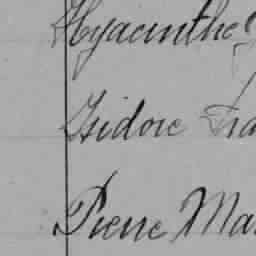 Hyacinthe
Isidore Fra
Pierre Mar